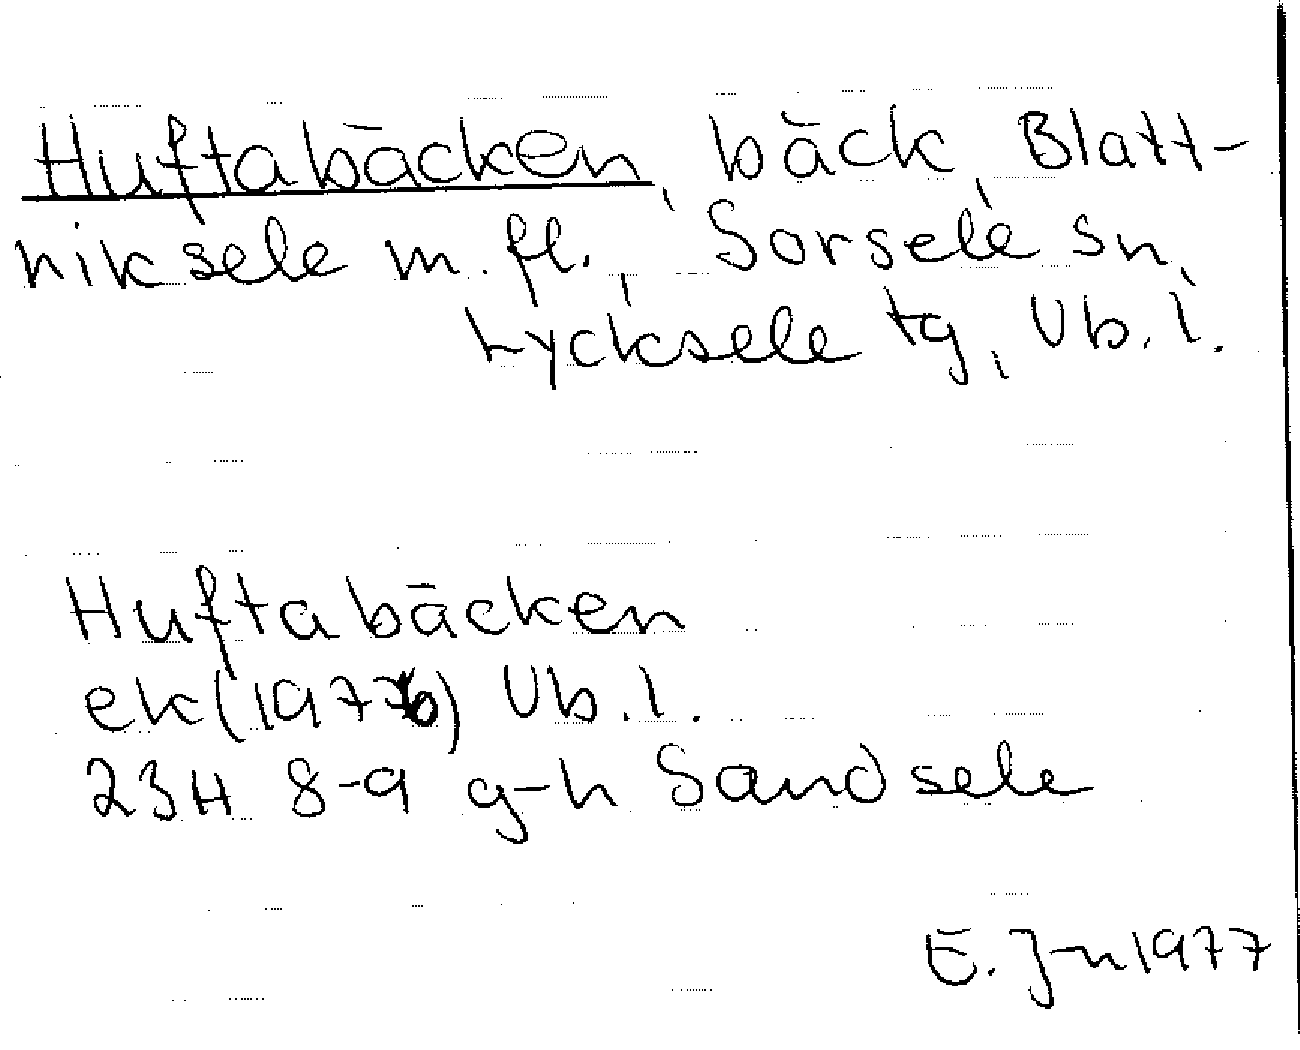 Huftabäcken, bäck, Blatt-
niksele m. fl., Sorsele sn,
Lycksele tg, Vb. l.
Huftabäcken
ek(1976) Vb. l.
23H 8-9 g-h Sandsele
E. J-n 1977